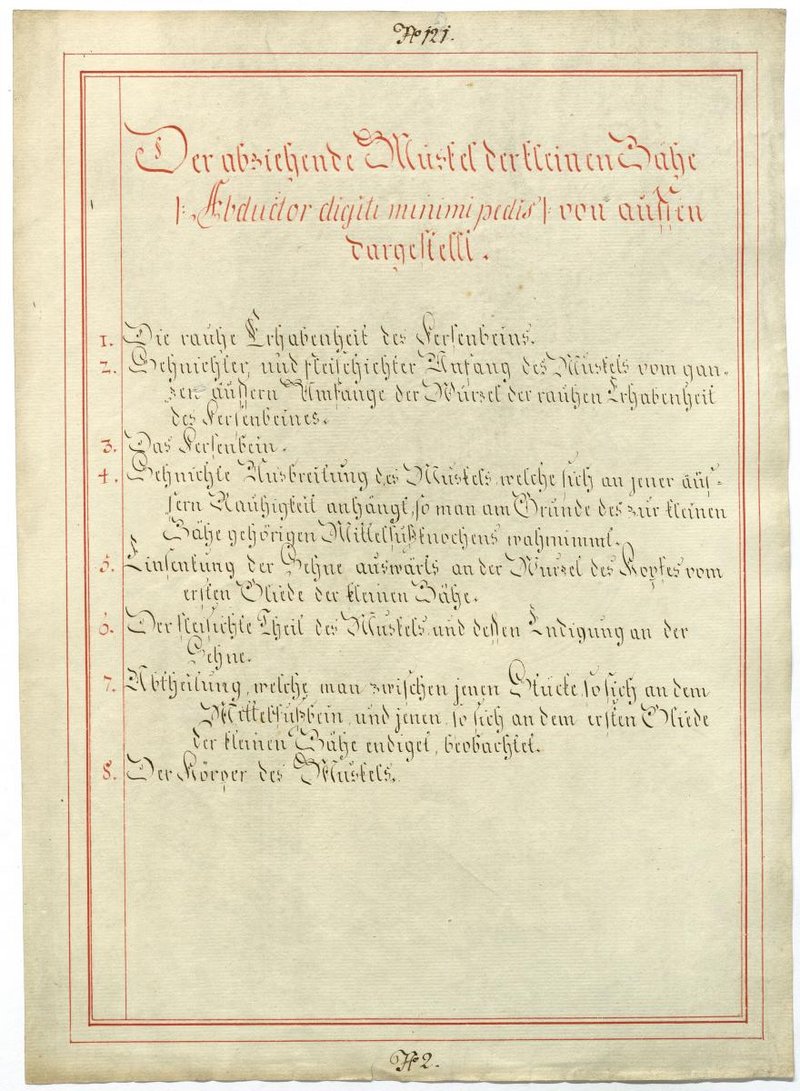 № 121.
Der abziehende Muskel der kleinen Zähe
|: Abductor digiti minimi pedis :| von aussen
dargestellt.
1. Die rauhe Erhabenheit des Fersenbeins.
2. Sehnichter, und fleischichter Anfang des Muskels vom gan-
zen äussern Umfange der Wurzel der rauhen Erhabenheit
des Fersenbeines.
3. Das Fersenbein.
4. Sehnichte Ausbreitung des Muskels, welche sich an jener äus-
sern Rauhigkeit anhängt, so man am Grunde des zur kleinen
Zähe gehörigen Mittelfußknochens wahrnimmt.
5. Einsenkung der Sehne auswärts an der Wurzel des Kopfes vom
ersten Gliede der kleinen Zähe.
6. Der fleischte Theil des Muskels, und dessen Endigung an der
Sehne.
7. Abtheilung, welche man zwischen jenen Stücke so sich an dem
Mittelfußbein, und jenen, so sich an dem ersten Gliede
der kleinen Zähe endiget, beobachtet.
8. Der Körper des Muskels.
№ 2.